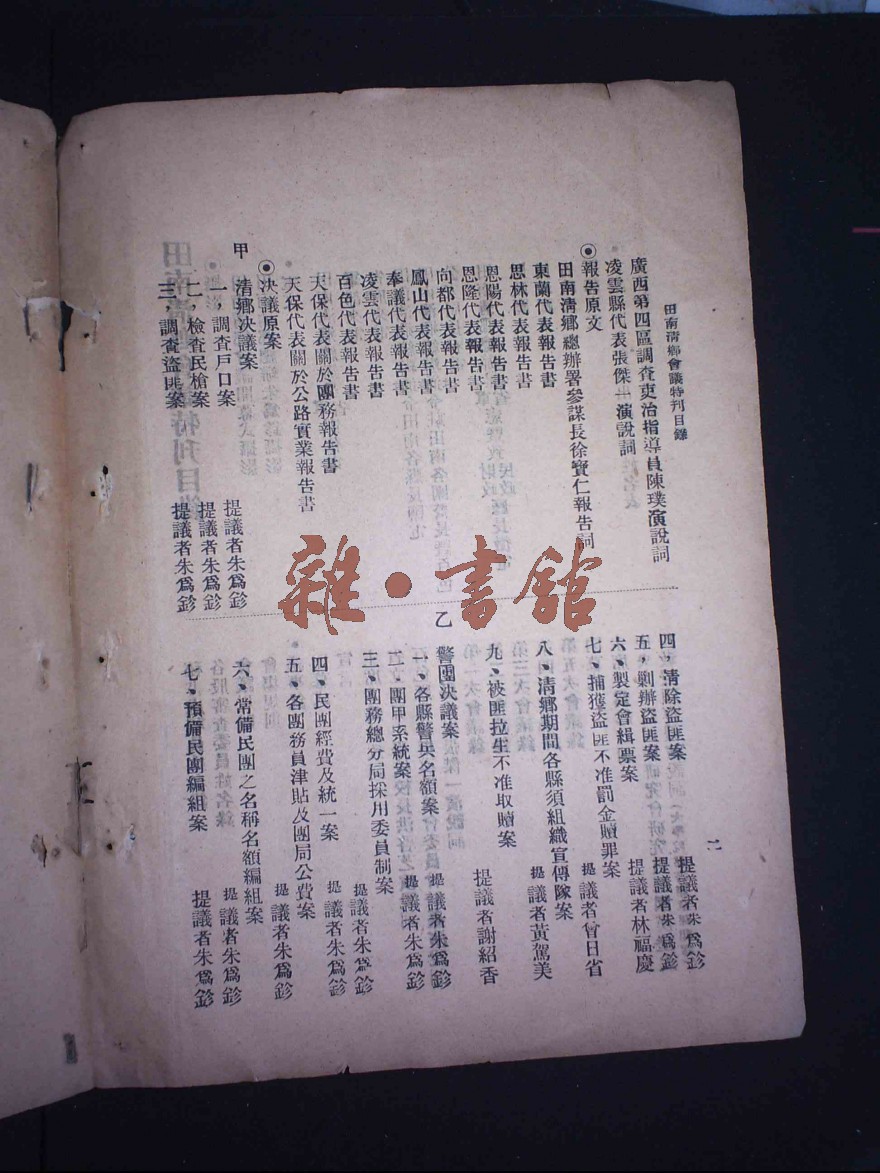 田南淸鄉會議特刊目錄
二
廣西第四區調查吏治指導員陳璞演說詞
凌雲縣代表張傑一演說詞
◉報告原文
田南淸鄉總辦署參謀長徐寶仁報告詞
東蘭代表報告書
思林代表報告書
恩陽代表報告書
恩隆代表報告書
向都代表報告書
鳳山代表報告書
奉議代表報告書
凌雲代表報告書
百色代表報告書
天保代表關於團務報告書
天保代表關於公路實業報告書
◉決議原案
甲 淸鄉決議案
一，調查戶口案 提議者朱爲鉁
二，檢查民槍案 提議者朱爲鉁
三，調查盜匪案 提議者朱爲鉁
四，淸除盜匪案 提議者朱爲鉁
五，剿辦盜匪案 提議者朱爲鉁
六，製定會緝票案 提議者林福慶
七，捕獲盜匪不准罰金贖罪案 提議者曾日省
八，淸鄉期間各縣須組織宣傳隊案 提議者黃駕美
九，被匪拉生不准取贖案 提議者謝紹香
乙 警團決議案
一，各縣警兵名額案 提議者朱爲鉁
二，團甲系統案 提議者朱爲鉁
三，團務總分局採用委員制案 提議者朱爲鉁
四，民團經費及統一案 提議者朱爲鉁
五，各團務員津貼及團局公費案 提議者朱爲鉁
六，常備民團之名稱名額編組案 提議者朱爲鉁
七，預備民團編組案 提議者朱爲鉁
雜·書館